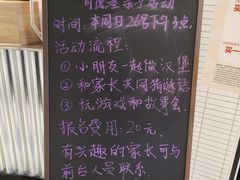 可爱宝亲子活动
时间：本周日26号下午3点，
活动流程：
① 小朋友一起做汉堡
② 和家长共同猜谜语
③ 玩游戏和故事会。
报名费用：20元。
有兴趣的家长可与
前台人员联系.
买一
买一